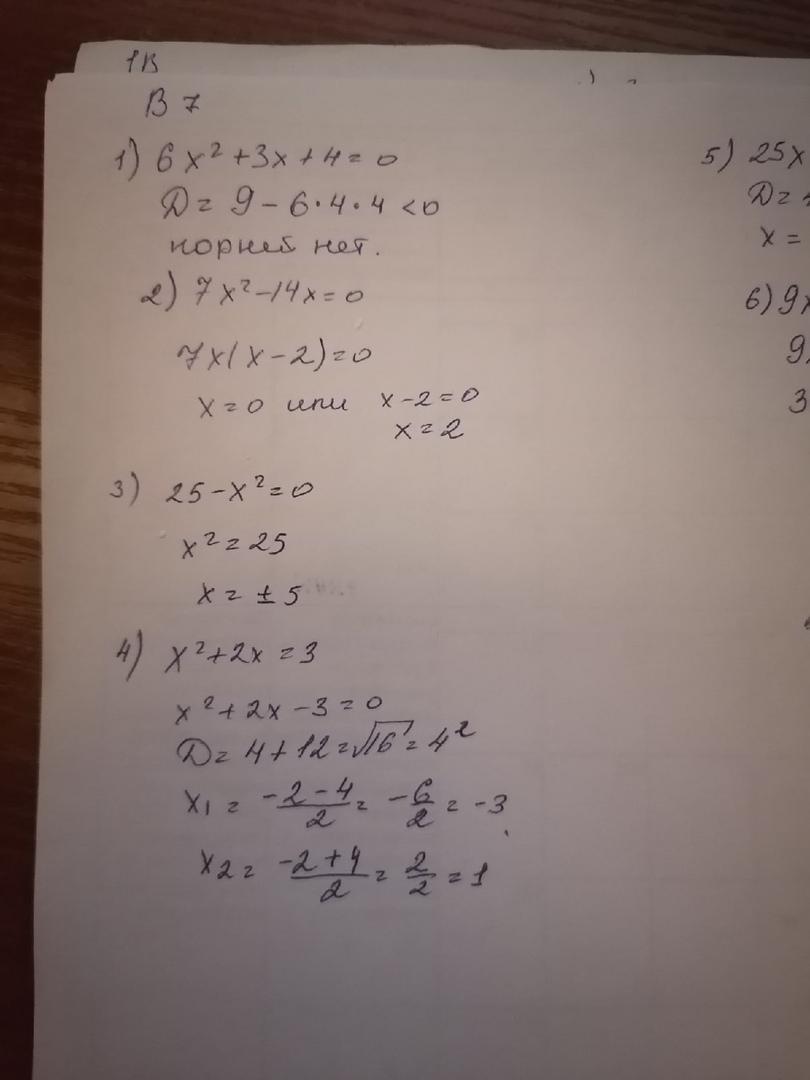 1В
В 7
1) 6x² + 3x + 4 = 0
D = 9 - 6·4·4 < 0
корней нет.
2) 7x² - 14x = 0
7x(x - 2) = 0
x = 0 или x - 2 = 0
x = 2
3) 25 - x² = 0
x² = 25
x = ± 5
4) x² + 2x = 3
x² + 2x - 3 = 0
D = 4 + 12 = √16 = 4²
x₁ = (-2 - 4)/2 = -6/2 = -3
x₂ = (-2 + 4)/2 = 2/2 = 1
5) 25x
D =
x =
6) 9x
9
3